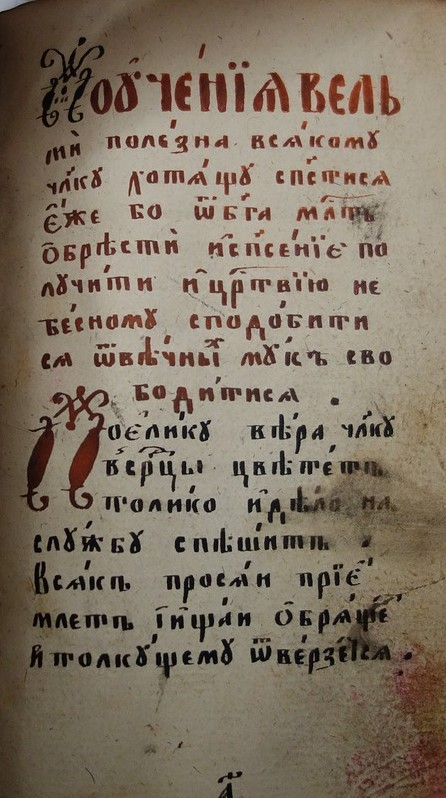 Поꙋче́нїѧ вель
мѝ поле́зна всѧ́комꙋ
чл҃кꙋ хотѧ́щꙋ спⷭ҇ти́сѧ
є҆́же бо ѿ бг҃а мл�ⷭ҇ть
ѡ҆брѣсти̑ и҆ спⷭ҇сенїе̑ по
лꙋчи́ти и҆ црⷭ҇твїю не
бе́сномꙋ сподо́бити
сѧ ѿ вѣ́чныⷯ мꙋкъ сво
боди́тисѧ .
Поє҆ли́кꙋ вѣ́ра чл҃кꙋ
в се́рⷣцы цвѣте́тъ
толи́ко и҆ дѣ́ло на
слꙋ́жбꙋ спѣши́тъ .
Всѧ́къ просѧ́и прїе́
млетъ и҆ и҆щѧ́и ѡ҆брѧ́щеⷮ
и҆ толкꙋ́щемꙋ ѿве́рзетсѧ .
а҃